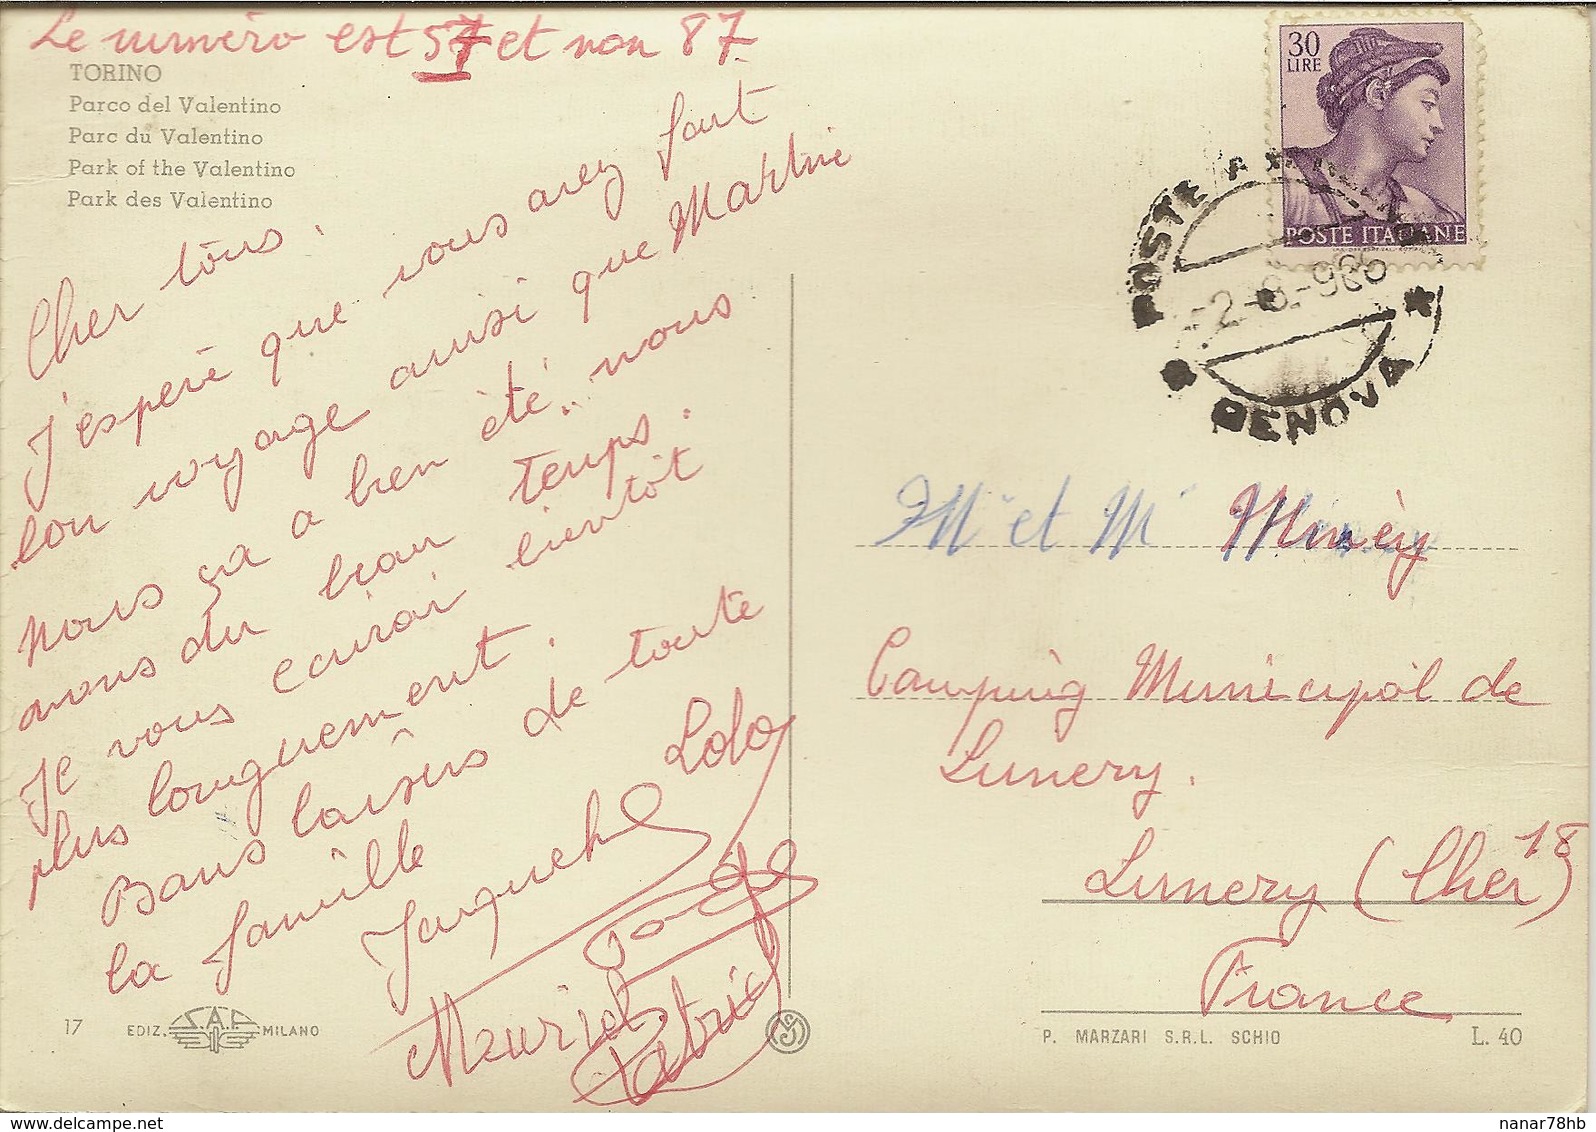 Le numéro est 57 et non 87
TORINO
Parco del Valentino
Parc du Valentino
Park of the Valentino
Park des Valentino
Cher tous.
J'esperé que vous avez fait
bon voyage aussi que Martine
nous ça a bien été. nous
avons du beau temps.
Je vous écrirai bientôt
plus longuement.
Bons baisers de toute
la famille
Lolo
Jaqueline
Muriel
Patrick
17
EDIZ. S.A.F. MILANO
30
LIRE
POSTE ITALIANE
POSTE
-2-8-966
GENOVA
Mr et M Minèy
Camping Municipal de
Lunery.
Lunery (Cher 18)
France
P. MARZARI S.R.L. SCHIO
L. 40
nanar78hb